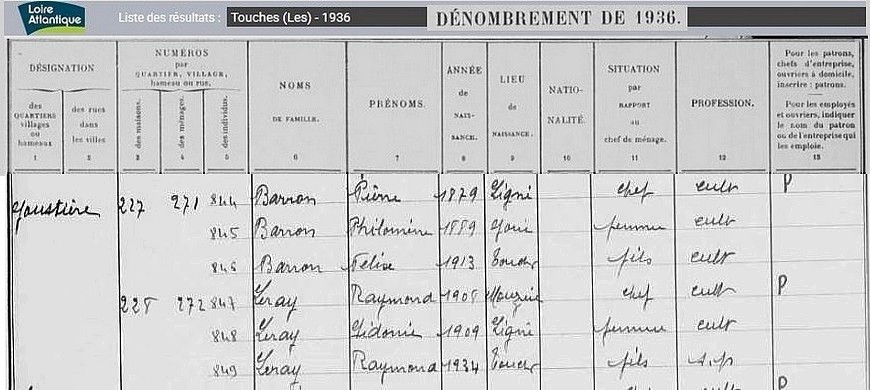 Loire Atlantique
Liste des résultats : Touches (Les) - 1936
DÉNOMBREMENT DE 1936.
DÉSIGNATION
des QUARTIERS villages ou hameaux
1
des rues dans les villes
2
NUMÉROS par QUARTIER, VILLAGE, hameau ou rue.
des maisons.
3
des ménages.
4
des individus.
5
NOMS DE FAMILLE.
6
PRÉNOMS.
7
ANNÉE de NAIS- SANCE.
8
LIEU de NAISSANCE.
9
NATIO- NALITÉ.
10
SITUATION par RAPPORT au chef de ménage.
11
PROFESSION.
12
Pour les patrons, chefs d'entreprise, ouvriers à domicile, inscrire : patrons.
Pour les employés et ouvriers, indiquer le nom du patron ou de l'entreprise qui les emploie.
13
227 271 844 Barron Pierre 1879 Ligné chef cult P
845 Barron Philomène 1889 femme cult
846 Barron Felix 1913 Touches fils cult
228 272 847 Leray Raymond 1905 Mouzeil chef cult P
848 Leray Sidonie 1909 Ligné femme cult
849 Leray Raymond 1934 Touches fils s.p